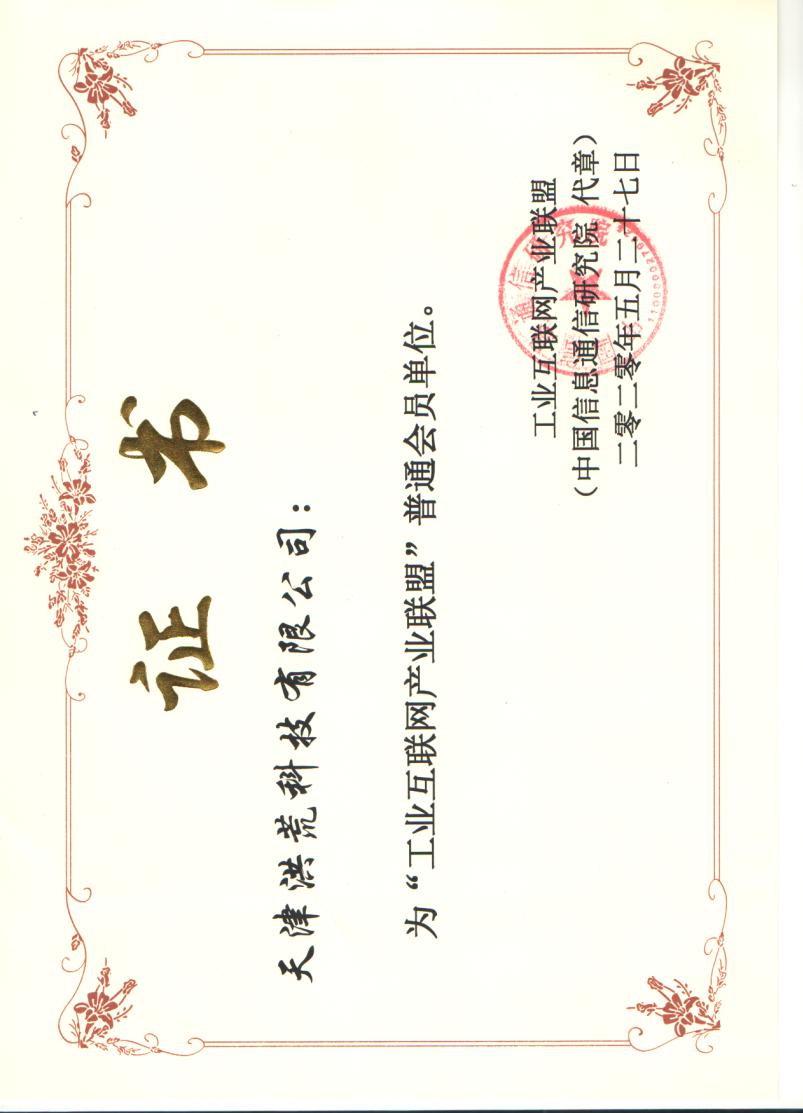 证书
天津洪荒科技有限公司：
为“工业互联网产业联盟”普通会员单位。
工业互联网产业联盟
（中国信息通信研究院 代章）
二零二零年五月二十七日